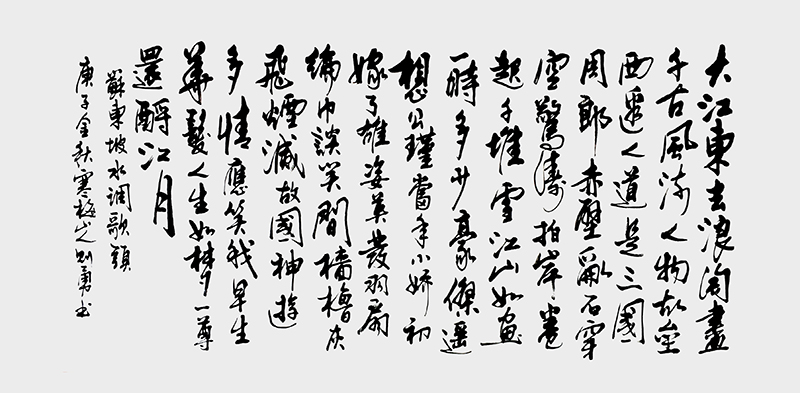 大江東去浪淘盡
千古風流人物故壘
西邊人道是三國
周郎赤壁亂石穿
空驚濤拍岸卷
起千堆雪江山如畫
一時多少豪傑遥
想公瑾當年小娇初
嫁了雄姿英發羽扇
綸巾談笑間檣櫓灰
飛煙滅故國神遊
多情應笑我早生
華髮人生如夢一尊
還酹江月
蘇東坡水调歌頭
庚子金秋寒梅刘勇书